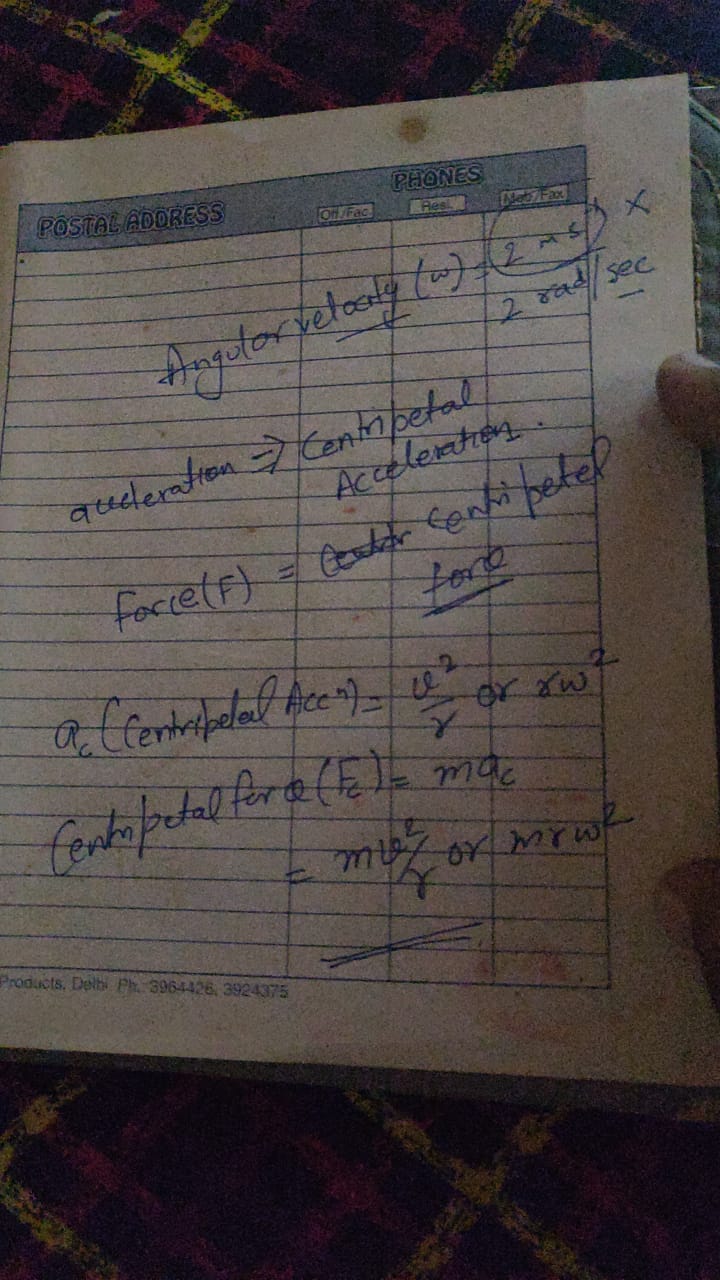 POSTAL ADDRESS
PHONES
Off./Fac. Resi. Mob./Fax
Angular velocity (w) = 2 ms⁻¹ ×
2 rad/sec
acceleration ⇒ Centripetal
Acceleration.
Force(F) = centripetal
force
a꜀ (Centripetal Accⁿ) = v²/r or rw²
Centripetal force (F꜀) = ma꜀
= mv²/r or mrw²
Products, Delhi Ph.: 3964426, 3924375